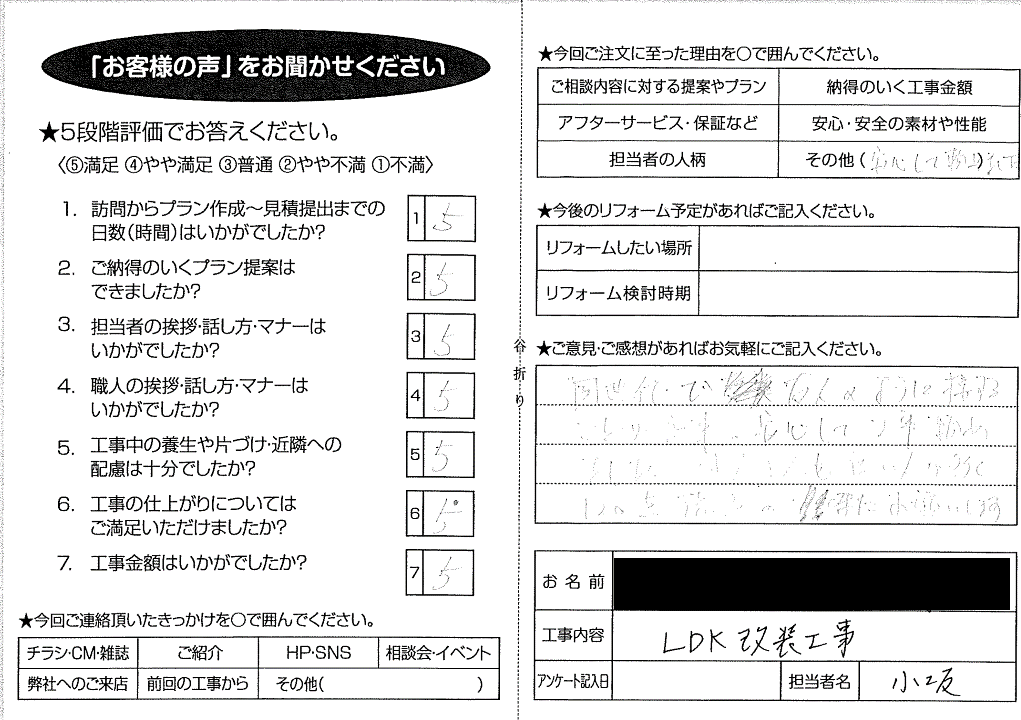 「お客様の声」をお聞かせください
★5段階評価でお答えください。
〈⑤満足 ④やや満足 ③普通 ②やや不満 ①不満〉
1. 訪問からプラン作成～見積提出までの
日数(時間)はいかがでしたか?
1 5
2. ご納得のいくプラン提案は
できましたか?
2 5
3. 担当者の挨拶・話し方・マナーは
いかがでしたか?
3 5
4. 職人の挨拶・話し方・マナーは
いかがでしたか?
4 5
5. 工事中の養生や片づけ・近隣への
配慮は十分でしたか?
5 5
6. 工事の仕上がりについては
ご満足いただけましたか?
6 5
7. 工事金額はいかがでしたか?
7 5
★今回ご連絡頂いたきっかけを○で囲んでください。
チラシ・CM・雑誌 ご紹介 HP・SNS 相談会・イベント
弊社へのご来店 前回の工事から その他( )
谷折り
★今回ご注文に至った理由を○で囲んでください。
ご相談内容に対する提案やプラン 納得のいく工事金額
アフターサービス・保証など 安心・安全の素材や性能
担当者の人柄 その他(安心して
★今後のリフォーム予定があればご記入ください。
リフォームしたい場所
リフォーム検討時期
★ご意見・ご感想があればお気軽にご記入ください。
同世代
安心して
お願いします
お名前
工事内容 LDK改装工事
アンケート記入日 担当者名 小坂